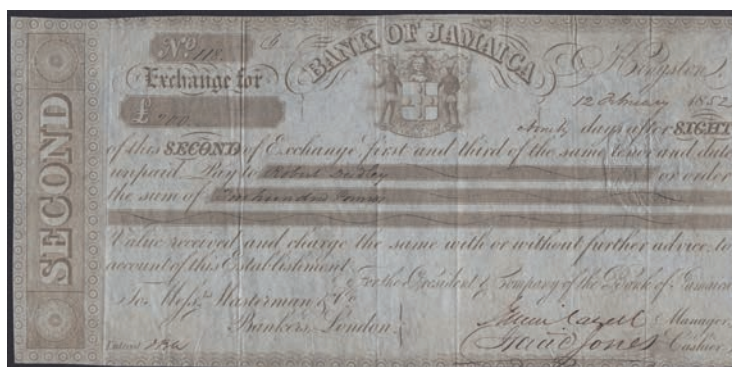 SECOND
Nº 118.
BANK OF JAMAICA
Exchange for
Kingston,
£
12 February 1852
Ninety days after SIGHT
of this SECOND of Exchange, first and third of the same tenor and date
unpaid Pay to Robert or order
the sum of hundred Pounds
Value received and charge the same with or without further advice, to
account of this Establishment.
For the President & Company of the Bank of Jamaica
To Messrs. Masterman & Co.
Bankers, London.
Manager,
Isaac Jones Cashier,
Entered